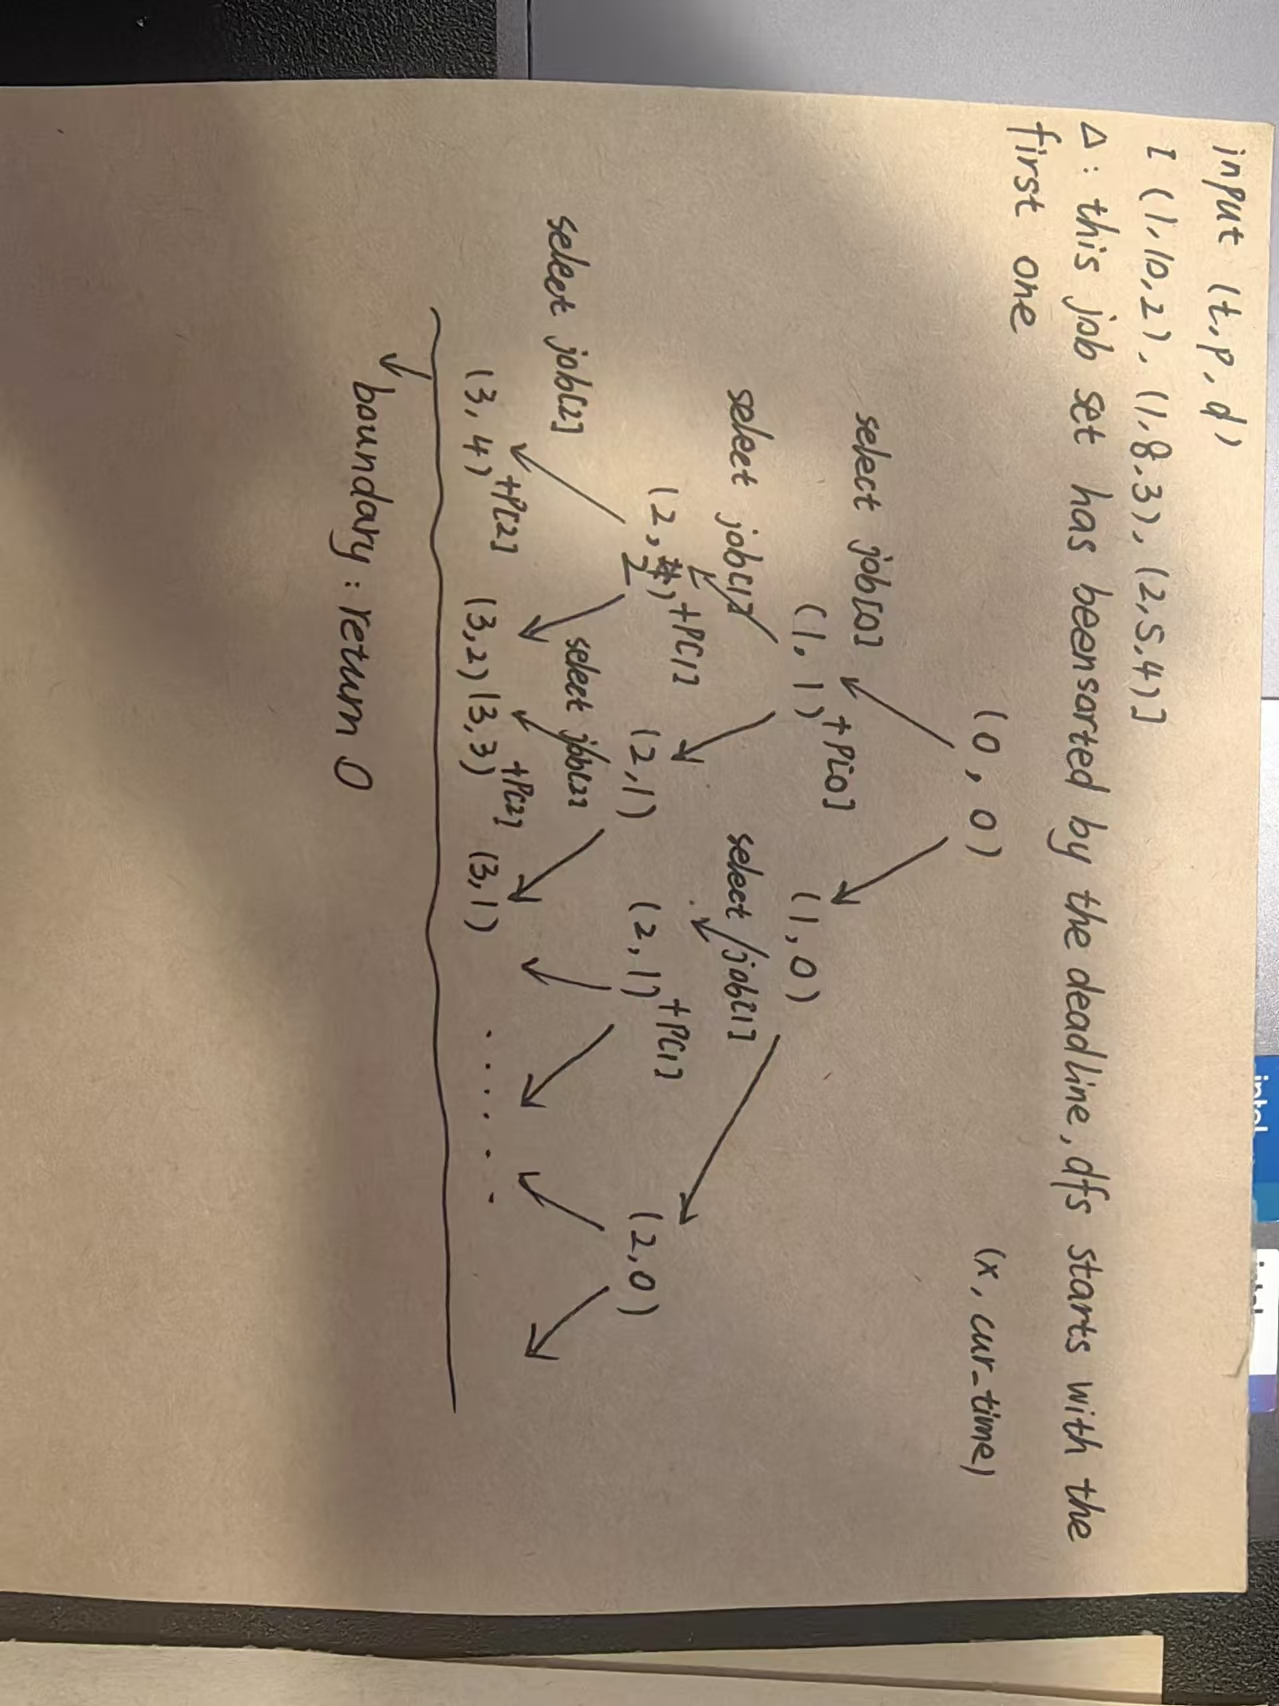 input (t,p,d)
[(1,10,2),(1,8,3),(2,5,4)]
Δ: this job set has been sorted by the deadline, dfs starts with the
first one
(0,0)
(x, cur_time)
select job[0]
(1,1) +P[0]
(1,0)
select job[1]
select job[1]
(2, 2) +P[1]
(2,1)
(2,1) +P[1]
(2,0)
select job[2]
select job[2]
(3,4) +P[2]
(3,2)
(3,3) +P[2]
(3,1)
.....
boundary: return 0
intel